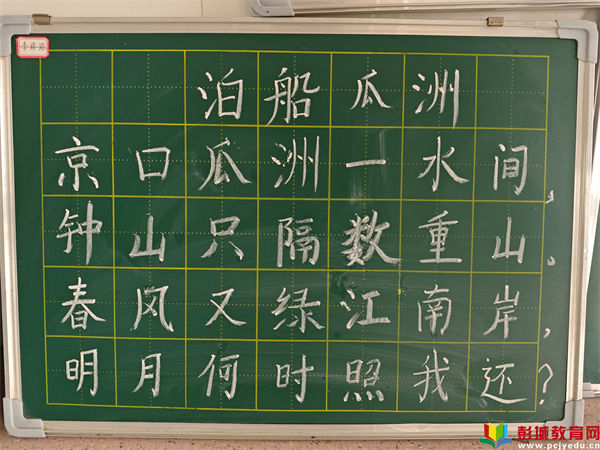 泊船瓜洲
京口瓜洲一水间,
钟山只隔数重山。
春风又绿江南岸,
明月何时照我还?
彭城教育网
www.pcjyedu.cn